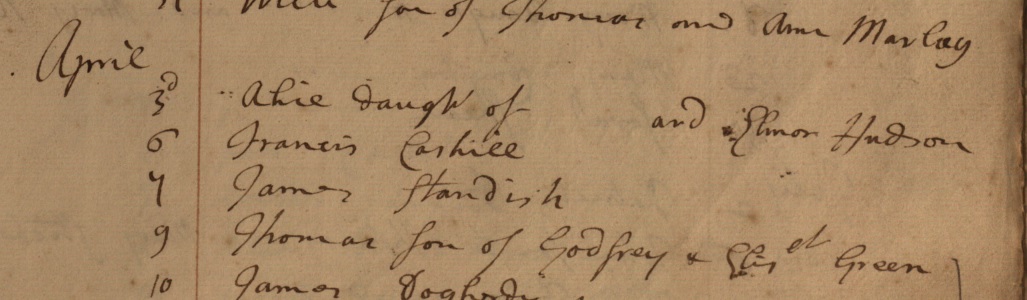 Will son of Thomas and Ann Marlay
April
3d Alice daugh of and Elinor Hudson
6 Francis Cashill
7 James Standish
9 Thomas son of Godfrey & Elizet Green
10 James Dogherty